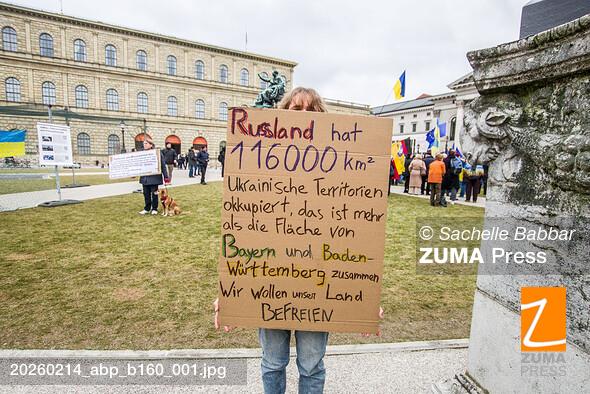 Russland hat
116000 km²
Ukrainische Territorien
okkupiert, das ist mehr
als die Fläche von
Bayern und Baden-
Württemberg zusammen
Wir wollen unser Land
BEFREIEN
© Sachelle Babbar
ZUMA Press
Z
ZUMA
PRESS
20260214_abp_b160_001.jpg